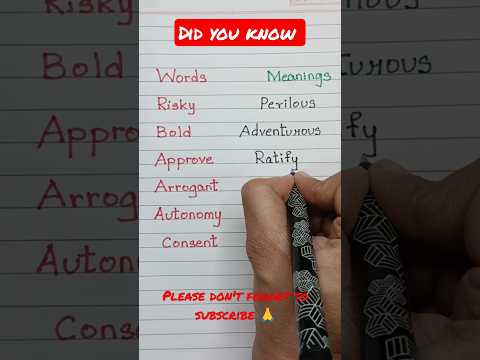 Did you know
Words Meanings
Risky Perilous
Bold Adventurous
Approve Ratify
Arrogant
Autonomy
Consent
Please don't forget to
subscribe 🙏